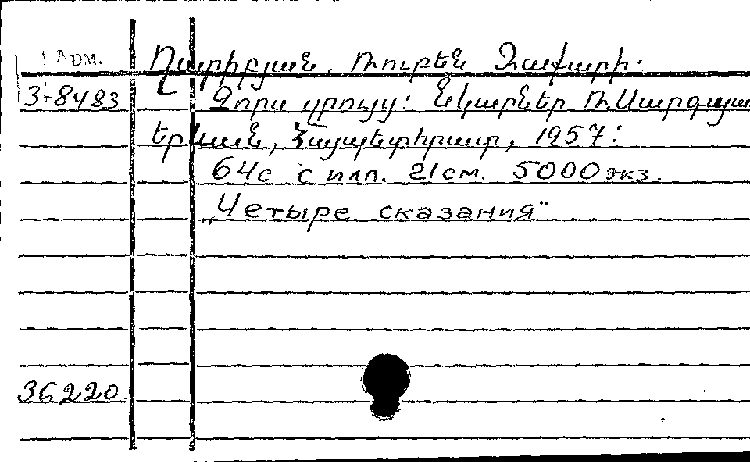 Арм.
Ղարիբյան, Ռուբեն Զաքարի.
3-8483
Չորս զրույց: Նկարներ Ռ.Սարգսյա
Երևան, Հայպետհրատ, 1957:
64с с илл. 21см. 5000экз.
„Четыре сказания"
36220